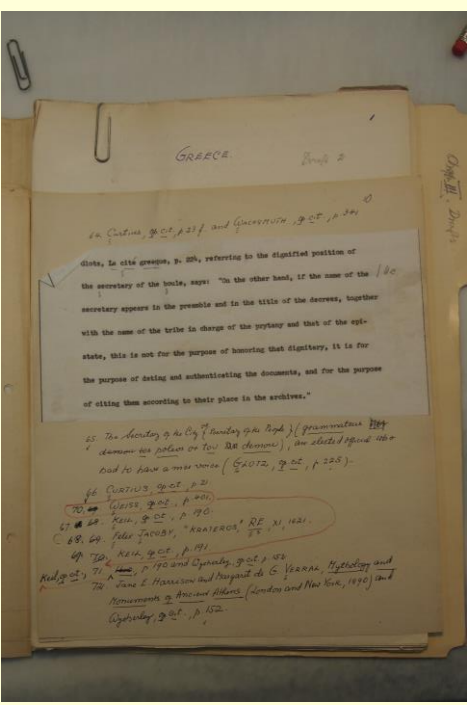 1
GREECE
Draft 2
Chapt. III, Drafts
64. Curtius, op. cit., p. 23 f. and Wachsmuth, op. cit., p.
Glotz, La cité grecque, p. 224, referring to the dignified position of
the secretary of the boule, says: "On the other hand, if the name of the
secretary appears in the preamble and in the title of the decrees, together
with the name of the tribe in charge of the prytany and that of the epi-
state, this is not for the purpose of honoring that dignitary, it is for
the purpose of dating and authenticating the documents, and for the purpose
of citing them according to their place in the archives."
65. The Secretary of the City (Secretary of the People) (grammateus
demou), an elected official who
had to have a nice voice (Glotz, op. cit., p. 225).
66. Curtius, op. cit., p. 21.
70. Weiss, op. cit., p. 401.
67. Keil, op. cit., p. 190.
68. Felix Jacoby, "Krateros," RE, XI, 1621.
Keil, op. cit., p. 191
Keil, op. cit., 71. p. 190 and Wycherley, op. cit., p. 154.
72. Jane E. Harrison and Margaret de G. Verral, Mythology and
Monuments of Ancient Athens (London and New York, 1890) and
Wycherley, op. cit., p. 152.